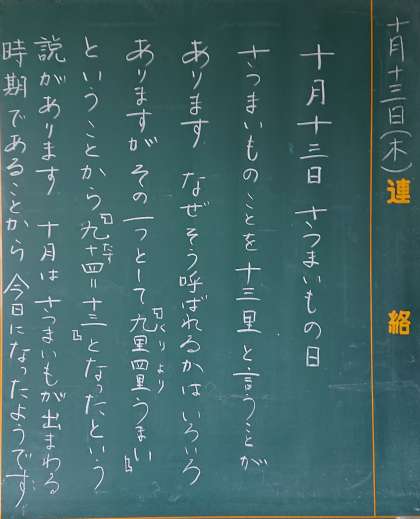 十月十三日(木)
連絡
十月十三日 さつまいもの日
さつまいものことを十三里と言うことが
あります なぜそう呼ばれるかは いろいろ
ありますが その一つとして「九里四里うまい」
くりより
ということから「九+四=十三」となった、という
たす
説があります 十月はさつまいもが出まわる
時期であることから 今日になったようです